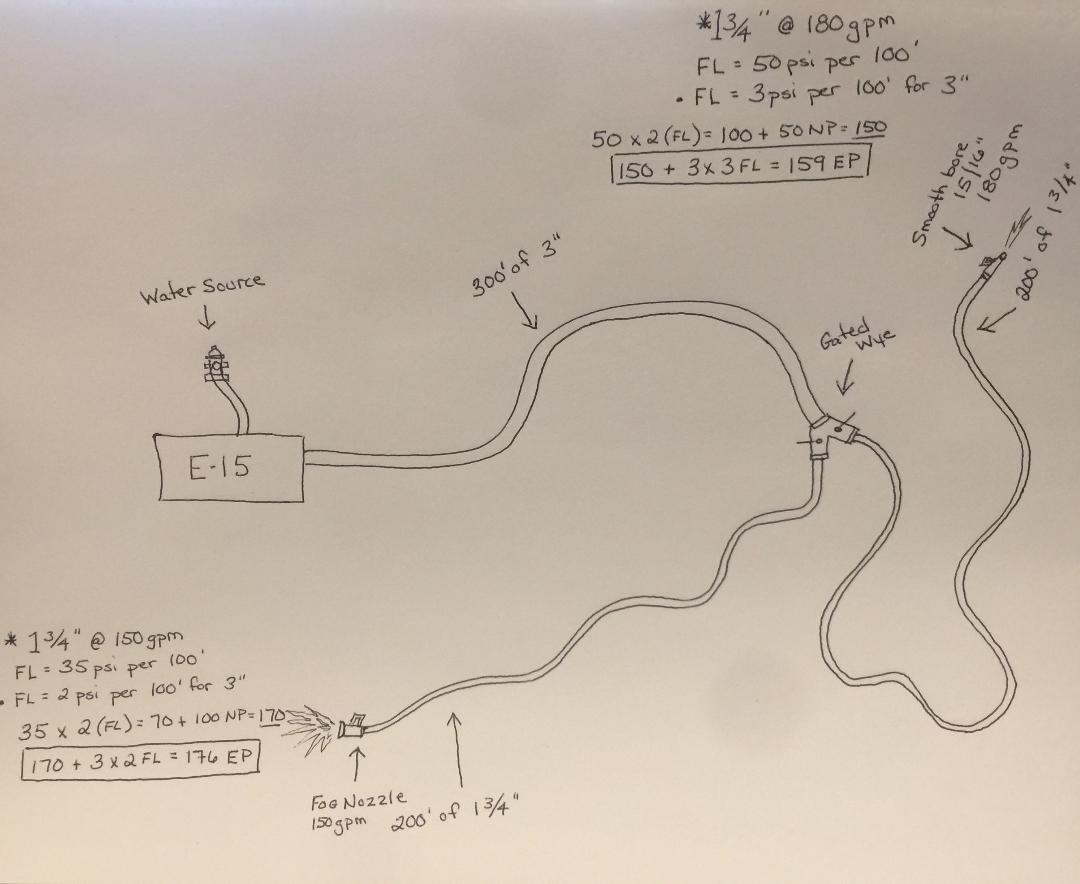 *1 3/4" @ 180gpm
FL = 50 psi per 100'
• FL = 3psi per 100' for 3"
50 x 2 (FL) = 100 + 50 NP = 150
150 + 3 x 3 FL = 159 EP
Smooth bore
15/16"
180gpm
200' of 1 3/4"
300' of 3"
Water Source
Gated
Wye
E-15
* 1 3/4" @ 150gpm
FL = 35 psi per 100'
• FL = 2 psi per 100' for 3"
35 x 2 (FL) = 70 + 100 NP = 170
170 + 3 x 2 FL = 176 EP
Fog Nozzle
150gpm
200' of 1 3/4"